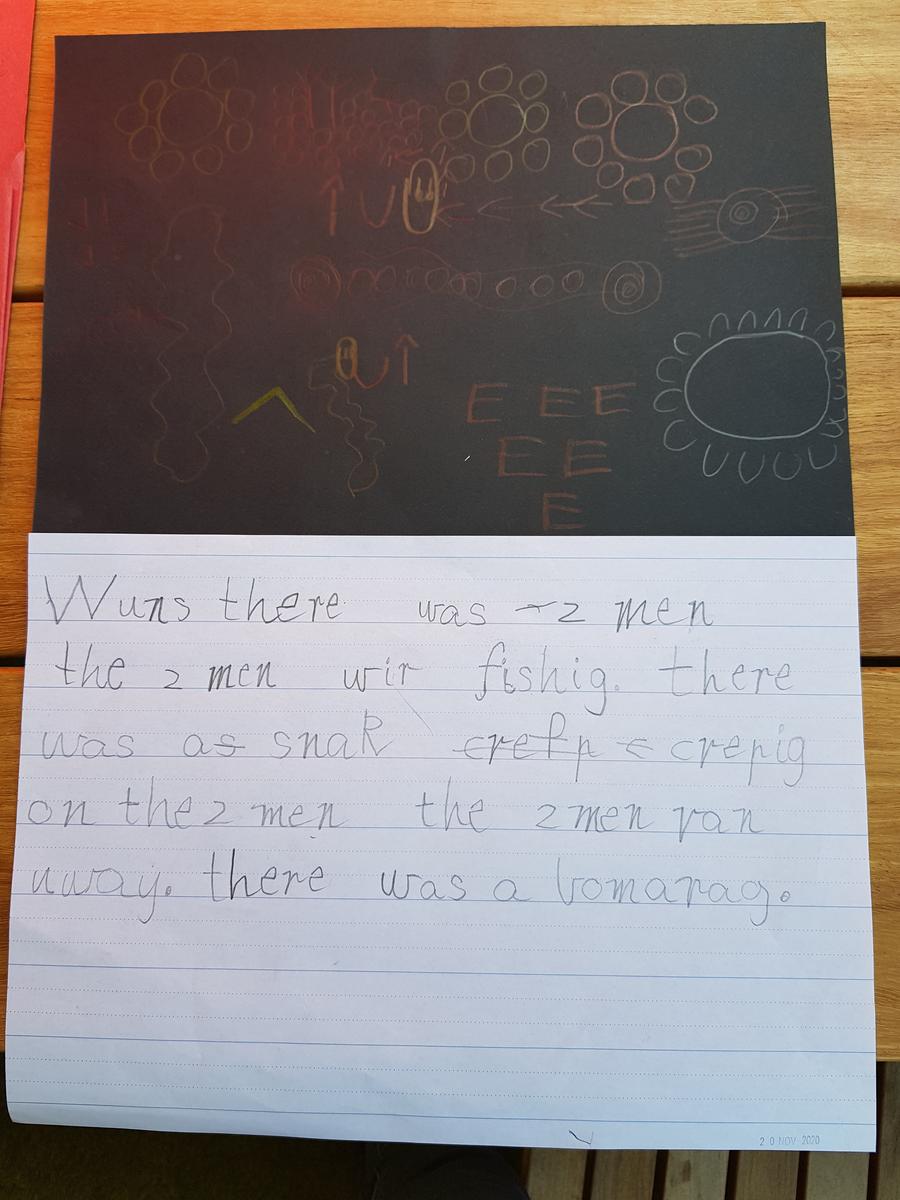 E E E
E E
E
Wuns there was 2 men
the 2 men wir fishig. there
was as snak crefp c crepig
on the 2 men the 2 men ran
uway. there was a bomarag.
20 NOV 2020